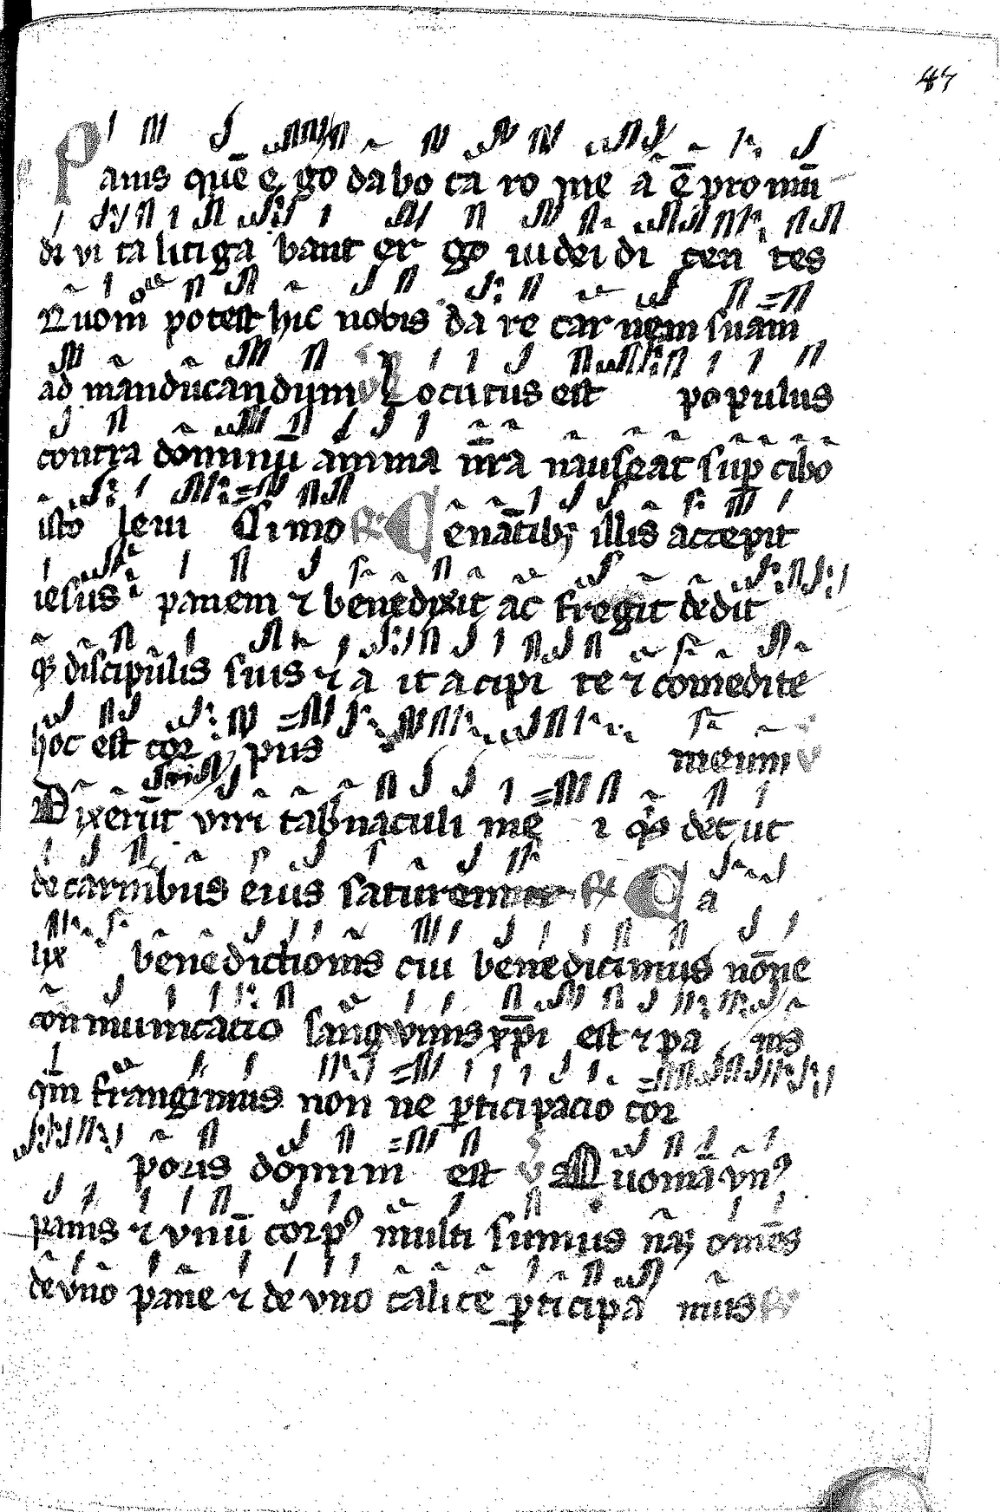 47
Panis quē ego dabo caro mea ē pro mūdi
di vita litigabant ergo iudei dicentes
Quomō potest hic nobis dare carnem suam
ad manducandum ℣ Locutus est populus
contra dominū anima nr̄a nauseat sup cibo
isto leuissimo ℟ Cenātibꝫ illis accepit
iesus panem ⁊ benedixit ac fregit dedit
qꝫ discipulis suis ⁊ a it accipite ⁊ comedite
hoc est corpus meum ℣
Dixerūt viri tab̄naculi mei ⁊ qͥs det ut
de carnibus eius saturemur ℟ Ca
lix benedictionis cui benedicimus nōne
conmunicatio sangvinis xp̄i est ⁊ panis
quē frangimus nonne ꝑticipacio cor
poris domini est ℣ Quoniā vnꝰ
panis ⁊ vnū corpꝰ multi sumus nā ꝫ omēs
de vno pane ⁊ de vno calice ꝑticipamus ℟